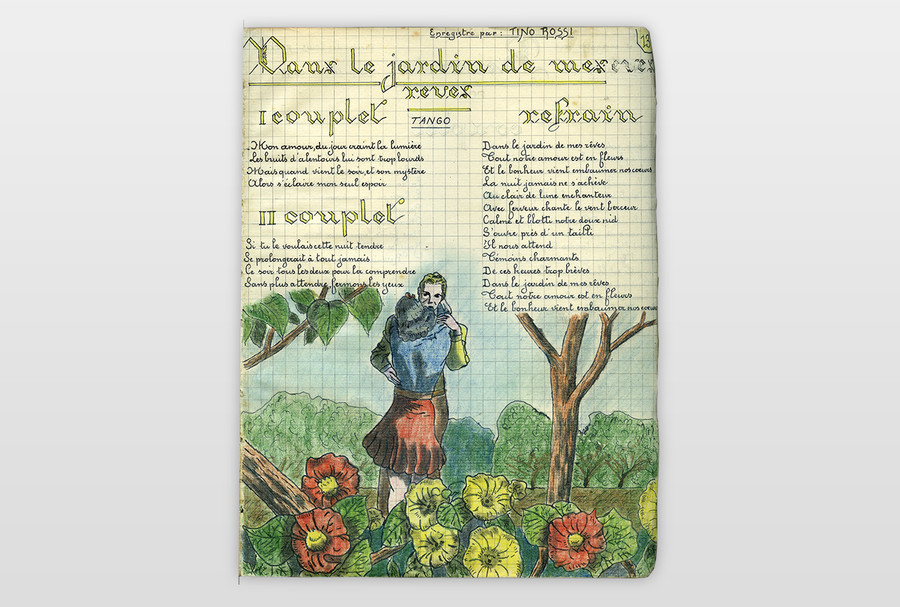 Enregistré par: TINO ROSSI
13
Dans le jardin de mes
reves
TANGO
I couplet
Mon amour, du jour craint la lumière
Les bruits d'alentours lui sont trop lourds
Mais quand vient le soir, et son mystère
Alors s'éclaire mon seul espoir
II couplet
Si tu le voulais cette nuit tendre
Se prolongerait à tout jamais
Ce soir tous les deux pour la comprendre
Sans plus attendre, fermons les yeux
refrain
Dans le jardin de mes rêves
Tout notre amour est en fleurs
Et le bonheur vient embaumer nos coeurs
La nuit jamais ne s'achève
Au clair de lune enchanteur
Avec ferveur chante le vent berceur
Calme et blotti notre doux nid
S'ouvre près d'un tailli
Il nous attend
Témoins charmants
De ces heures trop brèves
Dans le jardin de mes rêves
Tout notre amour est en fleurs
Et le bonheur vient embaumer nos coeurs